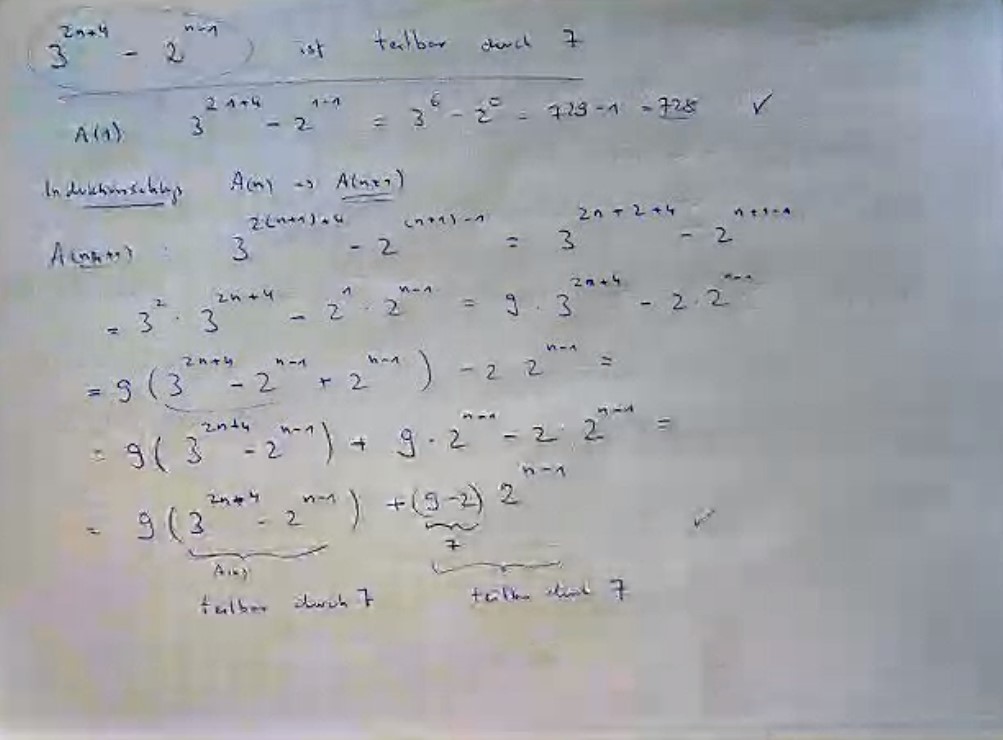 3^{2n+4} - 2^{n-1} ist teilbar durch 7
A(1) 3^{2·1+4} - 2^{1-1} = 3^6 - 2^0 = 729 - 1 = 728 ✓
Induktionsschluß A(n) => A(n+1)
A(n+1) : 3^{2(n+1)+4} - 2^{(n+1)-1} = 3^{2n+2+4} - 2^{n+1-1}
= 3^2 · 3^{2n+4} - 2^1 · 2^{n-1} = 9 · 3^{2n+4} - 2 · 2^{n-1}
= 9 (3^{2n+4} - 2^{n-1} + 2^{n-1}) - 2 2^{n-1} =
= 9 (3^{2n+4} - 2^{n-1}) + 9 · 2^{n-1} - 2 · 2^{n-1} =
= 9 (3^{2n+4} - 2^{n-1}) + (9-2) 2^{n-1} ✓
A(n) 7
teilbar durch 7 teilbar durch 7